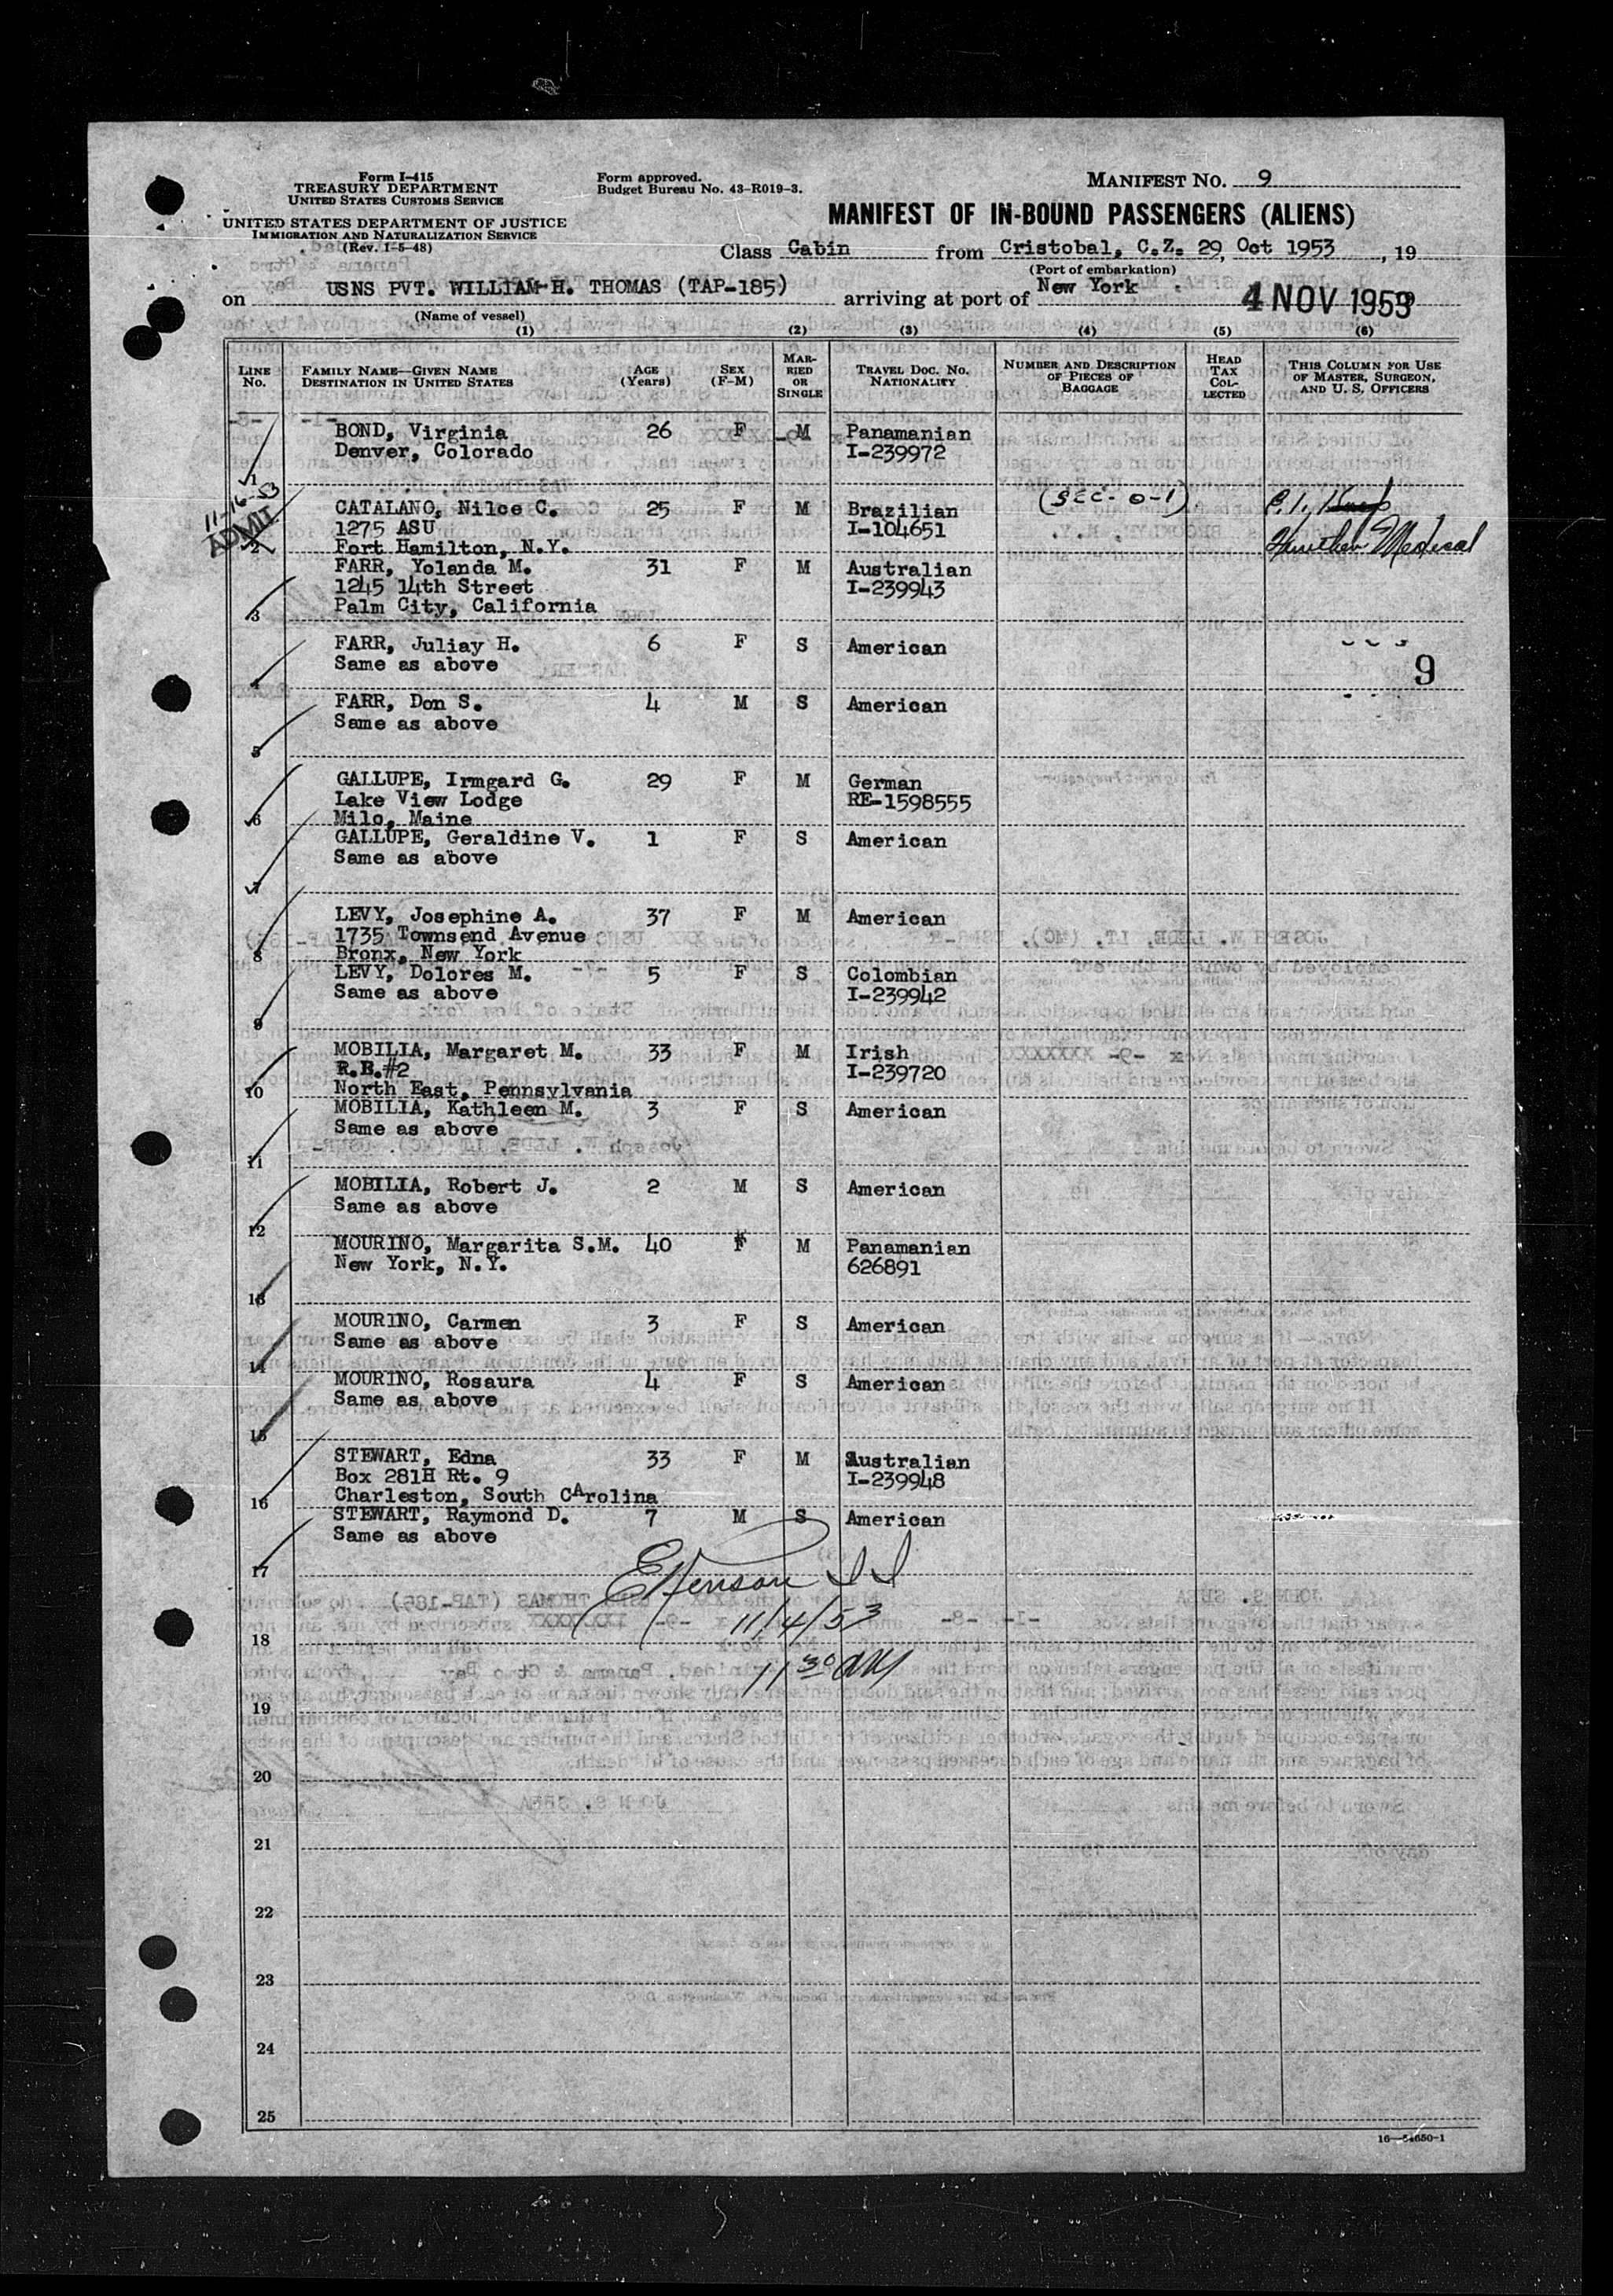 Form I-415
TREASURY DEPARTMENT
UNITED STATES CUSTOMS SERVICE
UNITED STATES DEPARTMENT OF JUSTICE
IMMIGRATION AND NATURALIZATION SERVICE
(Rev. 1-5-48)
Form approved.
Budget Bureau No. 43-R019-3.
MANIFEST NO. 9
MANIFEST OF IN-BOUND PASSENGERS (ALIENS)
Class Cabin from Cristobal, C.Z. 29, Oct 1953, 19
(Port of embarkation)
on USNS PVT. WILLIAM H. THOMAS (TAP-185) arriving at port of New York 4 NOV 1953
(Name of vessel)
(1) (2) (3) (4) (5) (6)
LINE No.
FAMILY NAME—GIVEN NAME
DESTINATION IN UNITED STATES
AGE (Years)
SEX (F-M)
MARRIED OR SINGLE
TRAVEL DOC. NO. NATIONALITY
NUMBER AND DESCRIPTION OF PIECES OF BAGGAGE
HEAD TAX COLLECTED
THIS COLUMN FOR USE OF MASTER, SURGEON, AND U. S. OFFICERS
1 BOND, Virginia 26 F M Panamanian
Denver, Colorado I-239972
11-16-53
ADMIT
2 CATALANO, Nilce C. 25 F M Brazilian (SEC- 0-1)
1275 ASU I-104651
Fort Hamilton, N.Y. Medical
3 FARR, Yolanda M. 31 F M Australian
1245 14th Street I-239943
Palm City, California
4 FARR, Juliay H. 6 F S American
Same as above
9
5 FARR, Don S. 4 M S American
Same as above
6 GALLUPE, Irmgard G. 29 F M German
Lake View Lodge RE-1598555
Milo, Maine
7 GALLUPE, Geraldine V. 1 F S American
Same as above
8 LEVY, Josephine A. 37 F M American
1735 Townsend Avenue
Bronx, New York
9 LEVY, Dolores M. 5 F S Colombian
Same as above I-239942
10 MOBILIA, Margaret M. 33 F M Irish
R.E.#2 I-239720
North East, Pennsylvania
11 MOBILIA, Kathleen M. 3 F S American
Same as above
12 MOBILIA, Robert J. 2 M S American
Same as above
13 MOURINO, Margarita S.M. 40 F M Panamanian
New York, N.Y. 626891
14 MOURINO, Carmen 3 F S American
Same as above
15 MOURINO, Rosaura 4 F S American
Same as above
16 STEWART, Edna 33 F M Australian
Box 281H Rt. 9 I-239948
Charleston, South CArolina
17 STEWART, Raymond D. 7 M S American
Same as above
11/4/53
18
11 30 AM
19
20
21
22
23
24
25
16—54650-1